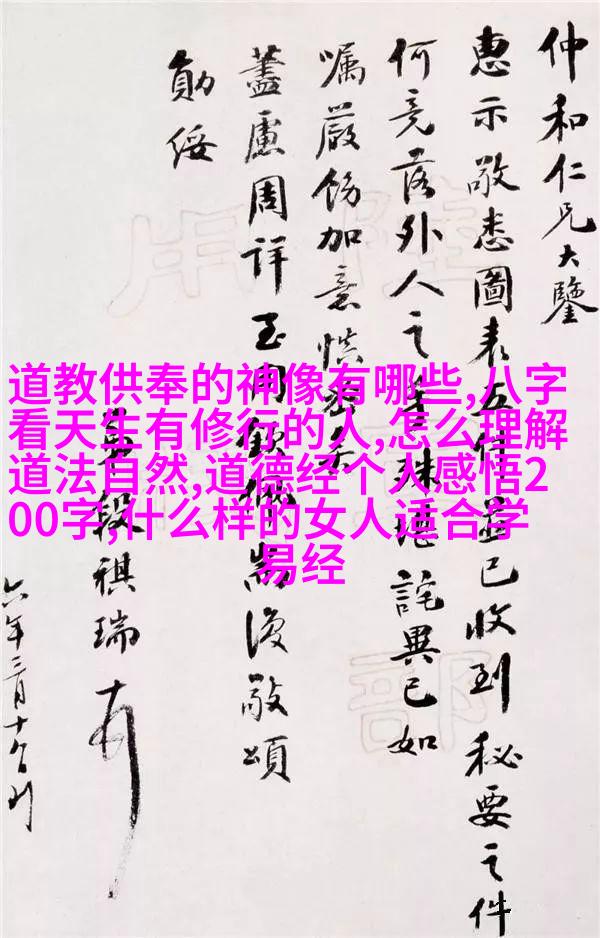 仲和仁兄大鑒
惠示敬悉圖表五件並已收到秘要之件
何竟落外人之手殊堪詫異已如
囑嚴飭加意慎密矣
藎慮周詳至用欽佩耑復敬頌
勛綏
弟段祺瑞
六年三月十
道教供奉的神像有哪些,八字
看天生有修行的人,怎么理解
道法自然,道德经个人感悟2
00字,什么样的女人适合学
易经